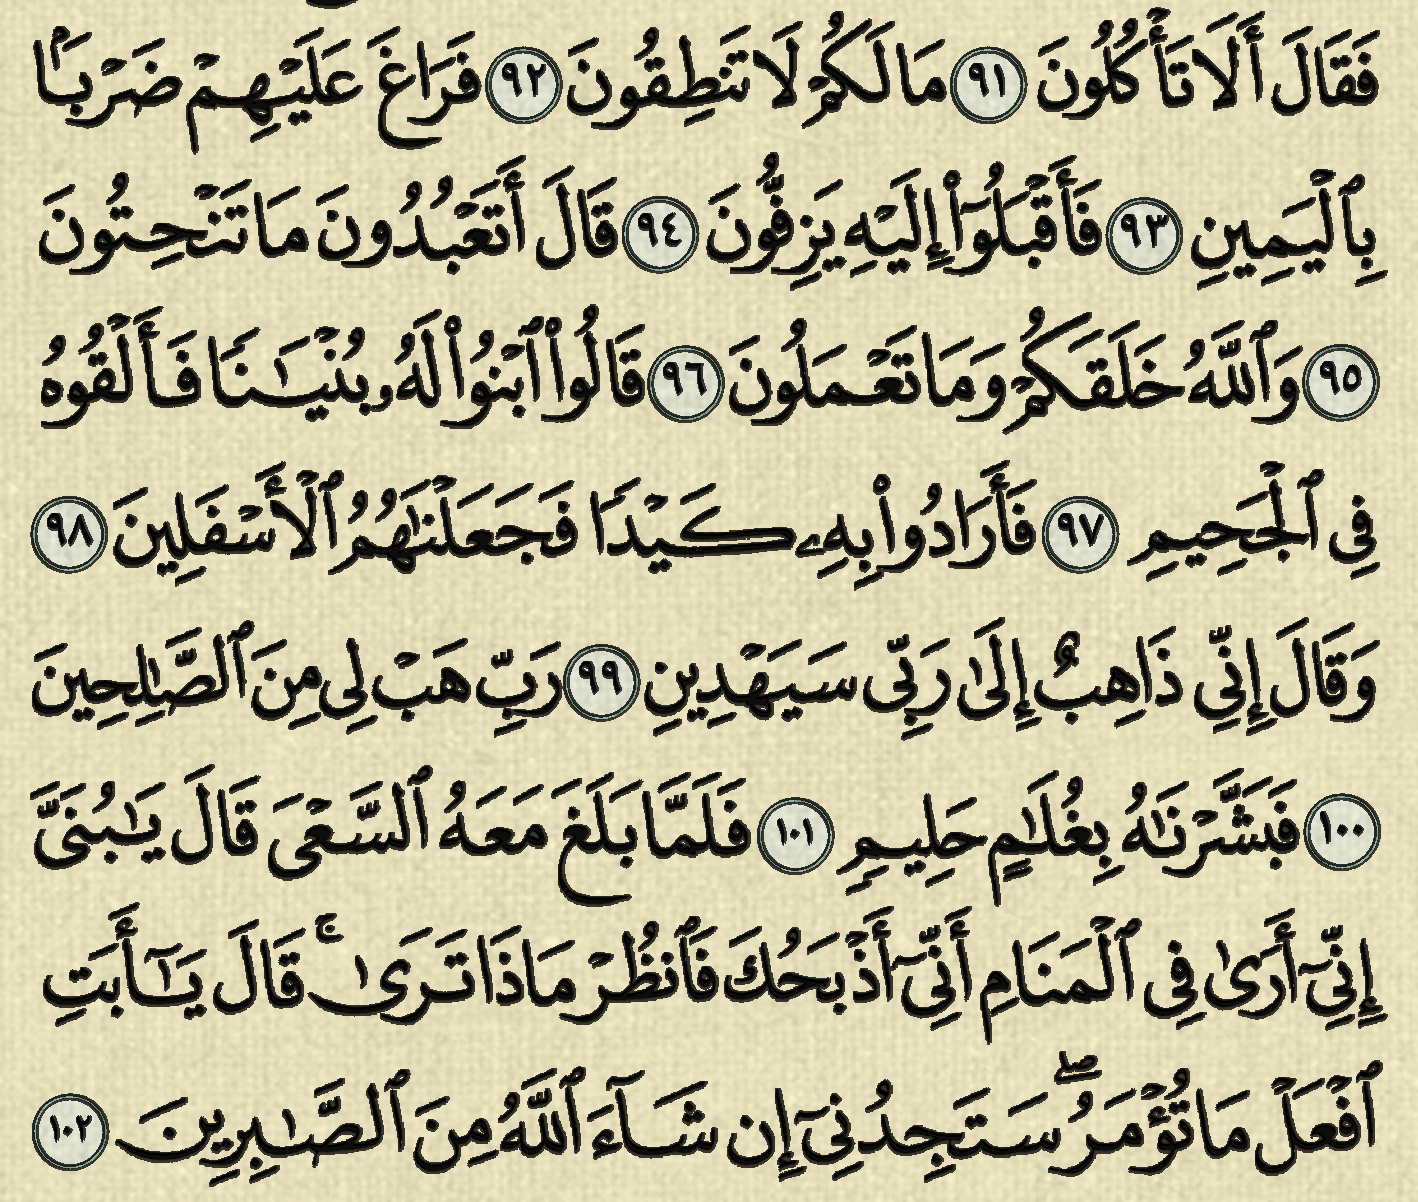 فَقَالَ أَلَا تَأۡكُلُونَ ٩١ مَا لَكُمۡ لَا تَنطِقُونَ ٩٢ فَرَاغَ عَلَيۡهِمۡ ضَرۡبَۢا
بِٱلۡيَمِينِ ٩٣ فَأَقۡبَلُوٓاْ إِلَيۡهِ يَزِفُّونَ ٩٤ قَالَ أَتَعۡبُدُونَ مَا تَنۡحِتُونَ
٩٥ وَٱللَّهُ خَلَقَكُمۡ وَمَا تَعۡمَلُونَ ٩٦ قَالُواْ ٱبۡنُواْ لَهُۥ بُنۡيَٰنٗا فَأَلۡقُوهُ
فِي ٱلۡجَحِيمِ ٩٧ فَأَرَادُواْ بِهِۦ كَيۡدٗا فَجَعَلۡنَٰهُمُ ٱلۡأَسۡفَلِينَ ٩٨
وَقَالَ إِنِّي ذَاهِبٌ إِلَىٰ رَبِّي سَيَهۡدِينِ ٩٩ رَبِّ هَبۡ لِي مِنَ ٱلصَّٰلِحِينَ
١٠٠ فَبَشَّرۡنَٰهُ بِغُلَٰمٍ حَلِيمٖ ١٠١ فَلَمَّا بَلَغَ مَعَهُ ٱلسَّعۡيَ قَالَ يَٰبُنَيَّ
إِنِّيٓ أَرَىٰ فِي ٱلۡمَنَامِ أَنِّيٓ أَذۡبَحُكَ فَٱنظُرۡ مَاذَا تَرَىٰۚ قَالَ يَٰٓأَبَتِ
ٱفۡعَلۡ مَا تُؤۡمَرُۖ سَتَجِدُنِيٓ إِن شَآءَ ٱللَّهُ مِنَ ٱلصَّٰبِرِينَ ١٠٢